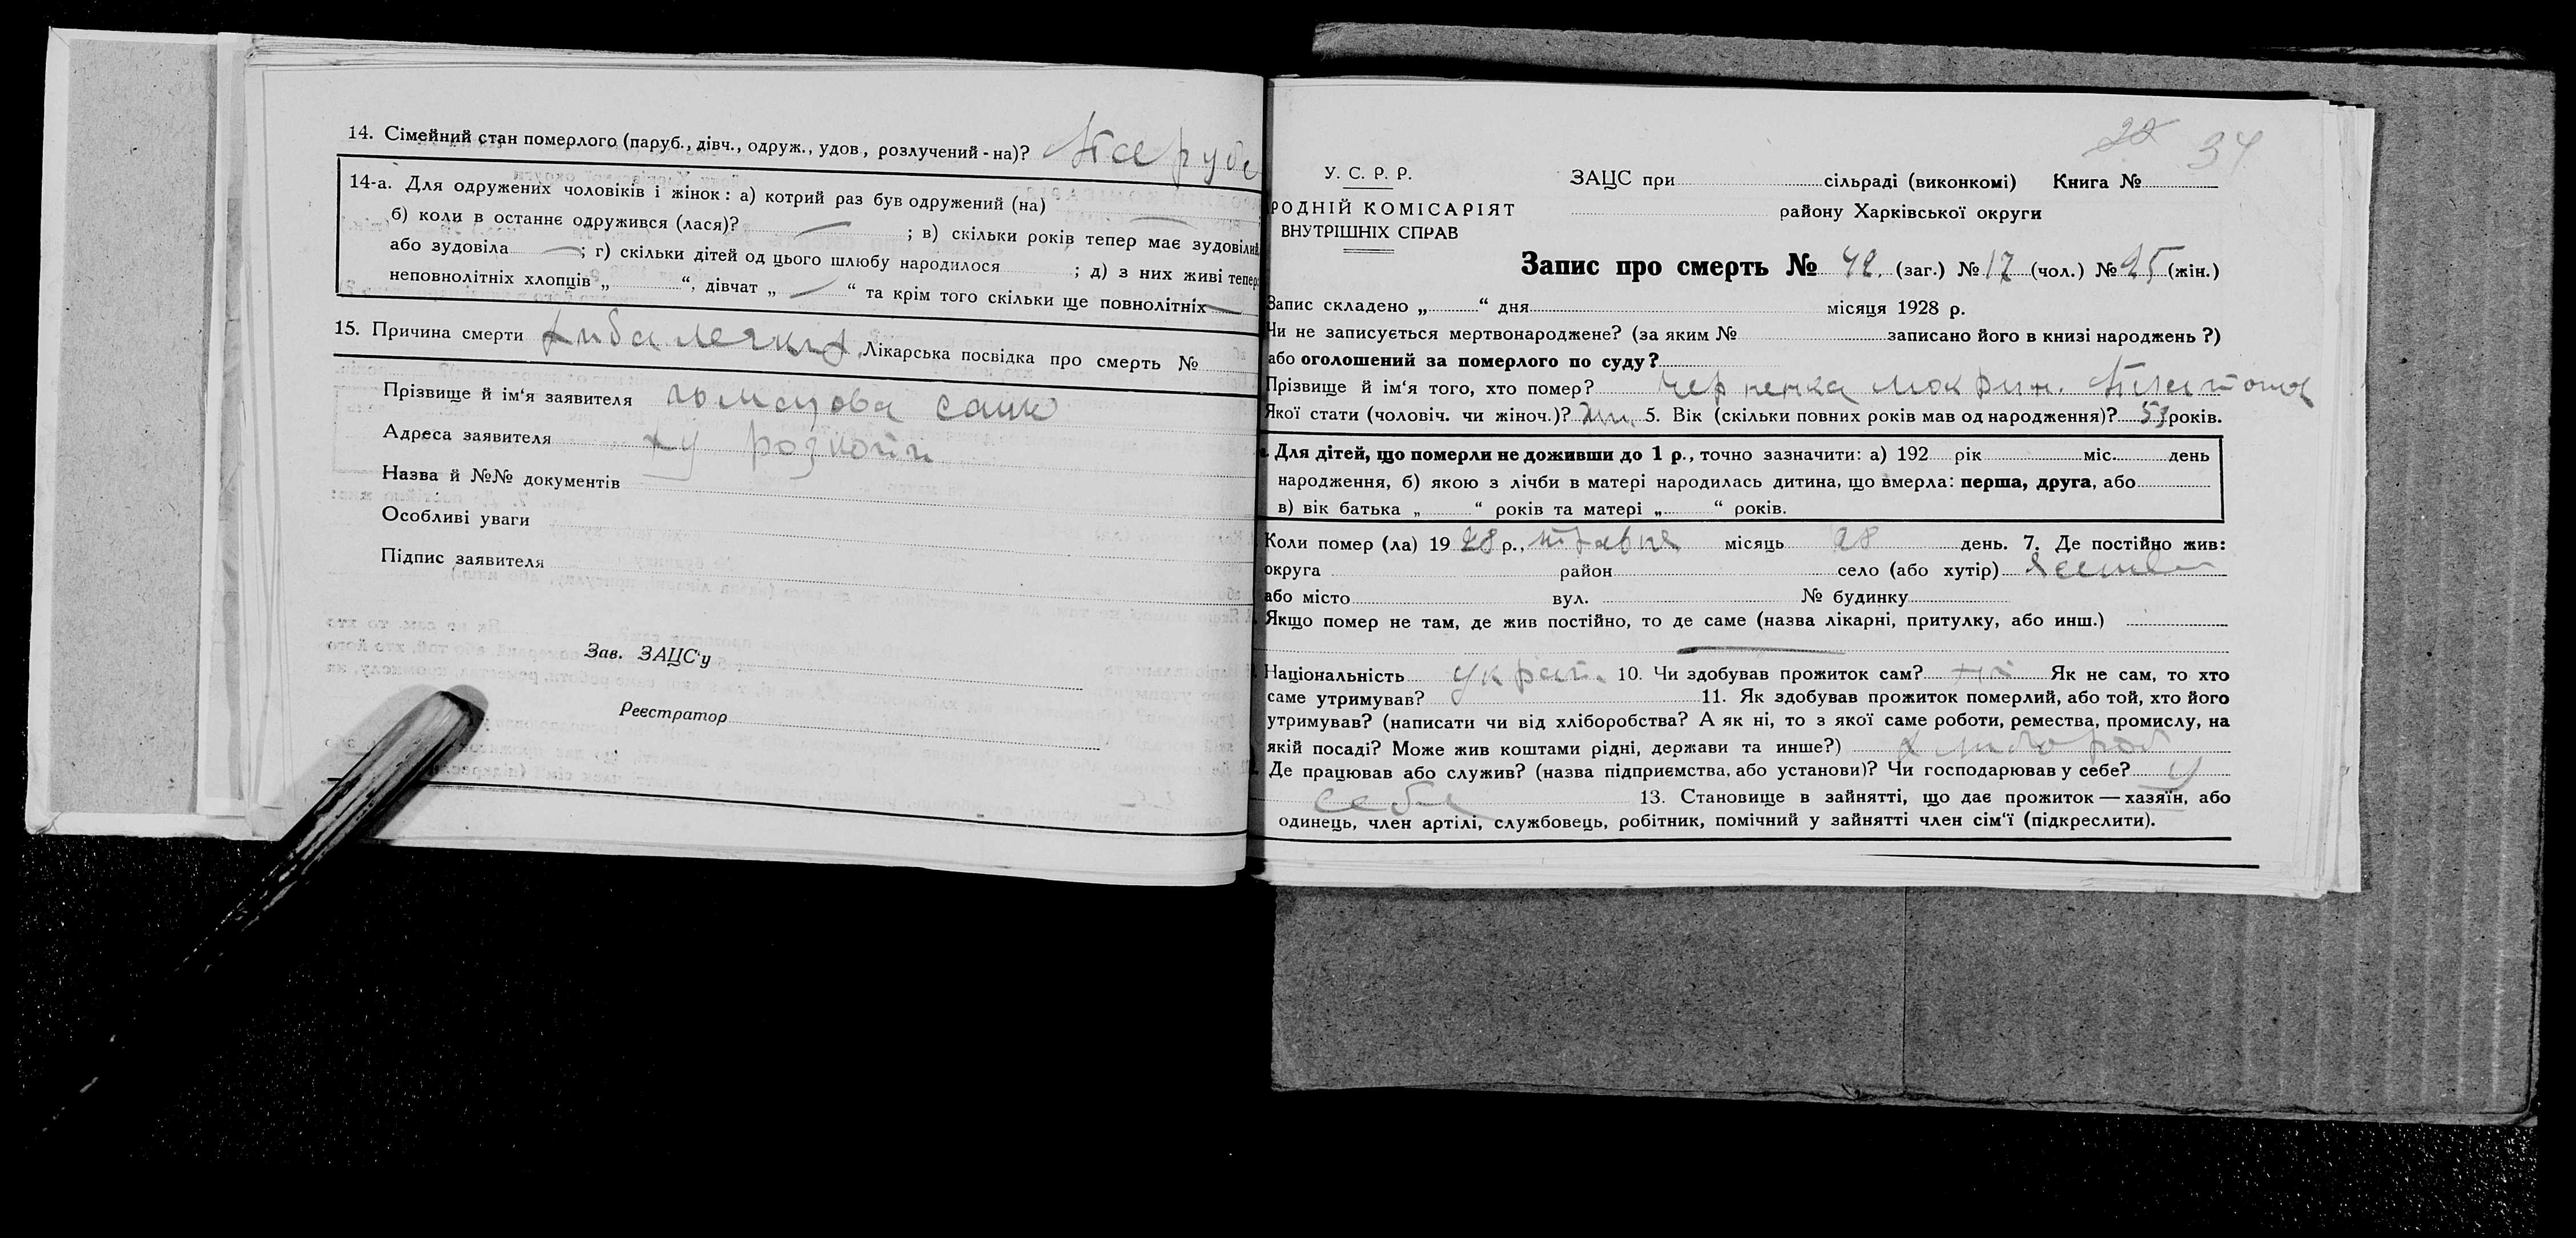 14. Сімейний стан померлого (паруб., дівч., одруж., удов, розлучений - на)? Парубо
14-а. Для одружених чоловіків і жінок: а) котрий раз був одружений (на)
б) коли в останнє одружився (лася)? — ; в) скільки років тепер має зудовілий
або зудовіла — ; г) скільки дітей од цього шлюбу народилося ; д) з них живі тепер:
неповнолітніх хлопців „ “, дівчат „ — “ та крім того скільки ще повнолітніх —
15. Причина смерти легких Лікарська посвідка про смерть №
Прізвище й ім‘я заявителя
Адреса заявителя
Назва й №№ документів
Особливі уваги
Підпис заявителя
Зав. ЗАЦС‘у
Реєстратор
22 34
У. С. Р. Р.
РОДНІЙ КОМІСАРІЯТ
ВНУТРІШНІХ СПРАВ
ЗАЦС при сільраді (виконкомі) Книга №
району Харківської округи
Запис про смерть № 42. (заг.) № 17 (чол.) № 25 (жін.)
Запис складено „ “ дня місяця 1928 р.
Чи не записується мертвонароджене? (за яким № записано його в книзі народжень ?)
або оголошений за померлого по суду?
Прізвище й ім‘я того, хто помер? Мокрин.
Якої стати (чоловіч. чи жіноч.)? жін. 5. Вік (скільки повних років мав од народження)? років.
Для дітей, що померли не доживши до 1 р., точно зазначити: а) 192 рік міс. день
народження, б) якою з лічби в матері народилась дитина, що вмерла: перша, друга, або
в) вік батька „ “ років та матері „ “ років.
Коли помер (ла) 19 28 р., травня місяць 28 день. 7. Де постійно жив:
округа район село (або хутір)
або місто вул. № будинку
Якщо помер не там, де жив постійно, то де саме (назва лікарні, притулку, або инш.)
Національність украї. 10. Чи здобував прожиток сам? Як не сам, то хто
саме утримував? 11. Як здобував прожиток померлий, або той, хто його
утримував? (написати чи від хліборобства? А як ні, то з якої саме роботи, ремества, промислу, на
якій посаді? Може жив коштами рідні, держави та инше?) хлибороб
Де працював або служив? (назва підприємства, або установи)? Чи господарював у себе? у
себе 13. Становище в зайнятті, що дає прожиток — хазяїн, або
одинець, член артілі, службовець, робітник, помічний у зайнятті член сім‘ї (підкреслити).